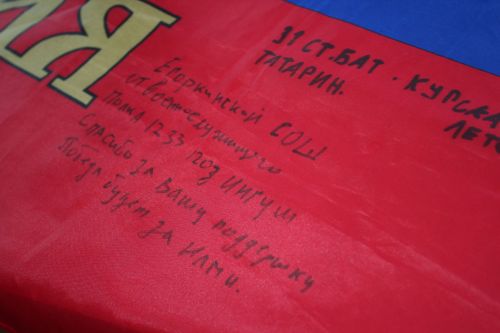 31 СТ.БАТ. КУРСКА
ТАТАРИН. ЛЕТО
Егоркинской СОШ
от военнослужащего
Полка 1233 поз Ингуш
Спасибо за Вашу поддержку
Победа будет за нами.